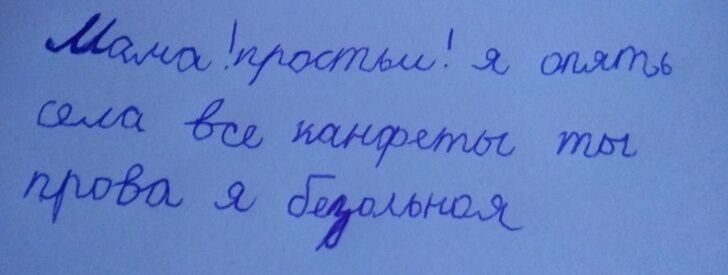 Мама! простьи! я опять
села все канфеты ты
прова я безольная